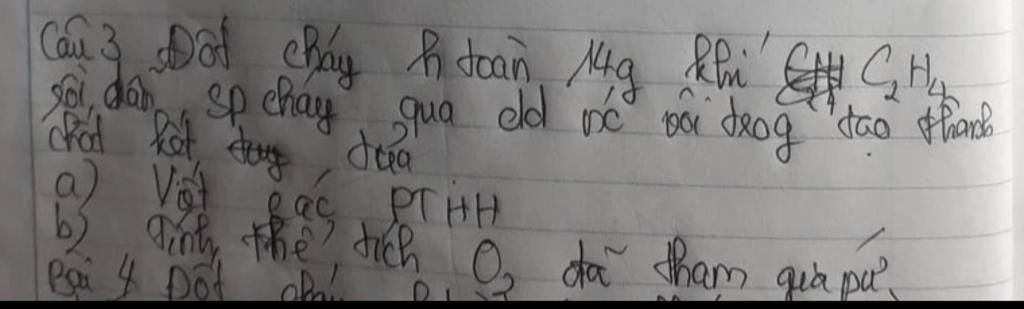 Câu 3 Đốt cháy h toàn 14g khí C₂H₄
rồi dẫn sp cháy qua dd nc vôi trog tạo thành
chất kết tủa
a) Viết các PTHH
b) Tính thể tích O₂ đã tham gia pư.
Bài 4 Đốt cháy